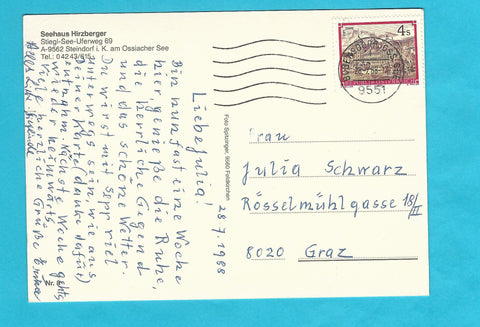 Seehaus Hirzberger
Stiegl-See-Uferweg 69
A-9562 Steindorf i. K. am Ossiacher See
Tel.: 04243/615
28.7.1988
Liebe Julia!
Bin nun fast eine Woche
hier genieße die Ruhe,
die herrliche Gegend
und das schöne Wetter.
Du wirst mit Sepp viel
unterwegs sein, wie aus
Deiner Karte (danke dafür)
entnahm. Nächste Woche geht's
wieder heimwärts.
herzliche Grüße Erika
Nr. 8
Foto Spitzinger, 9560 Feldkirchen
4s
9551
Frau
Julia Schwarz
Rösselmühlgasse 18/II
8020 Graz